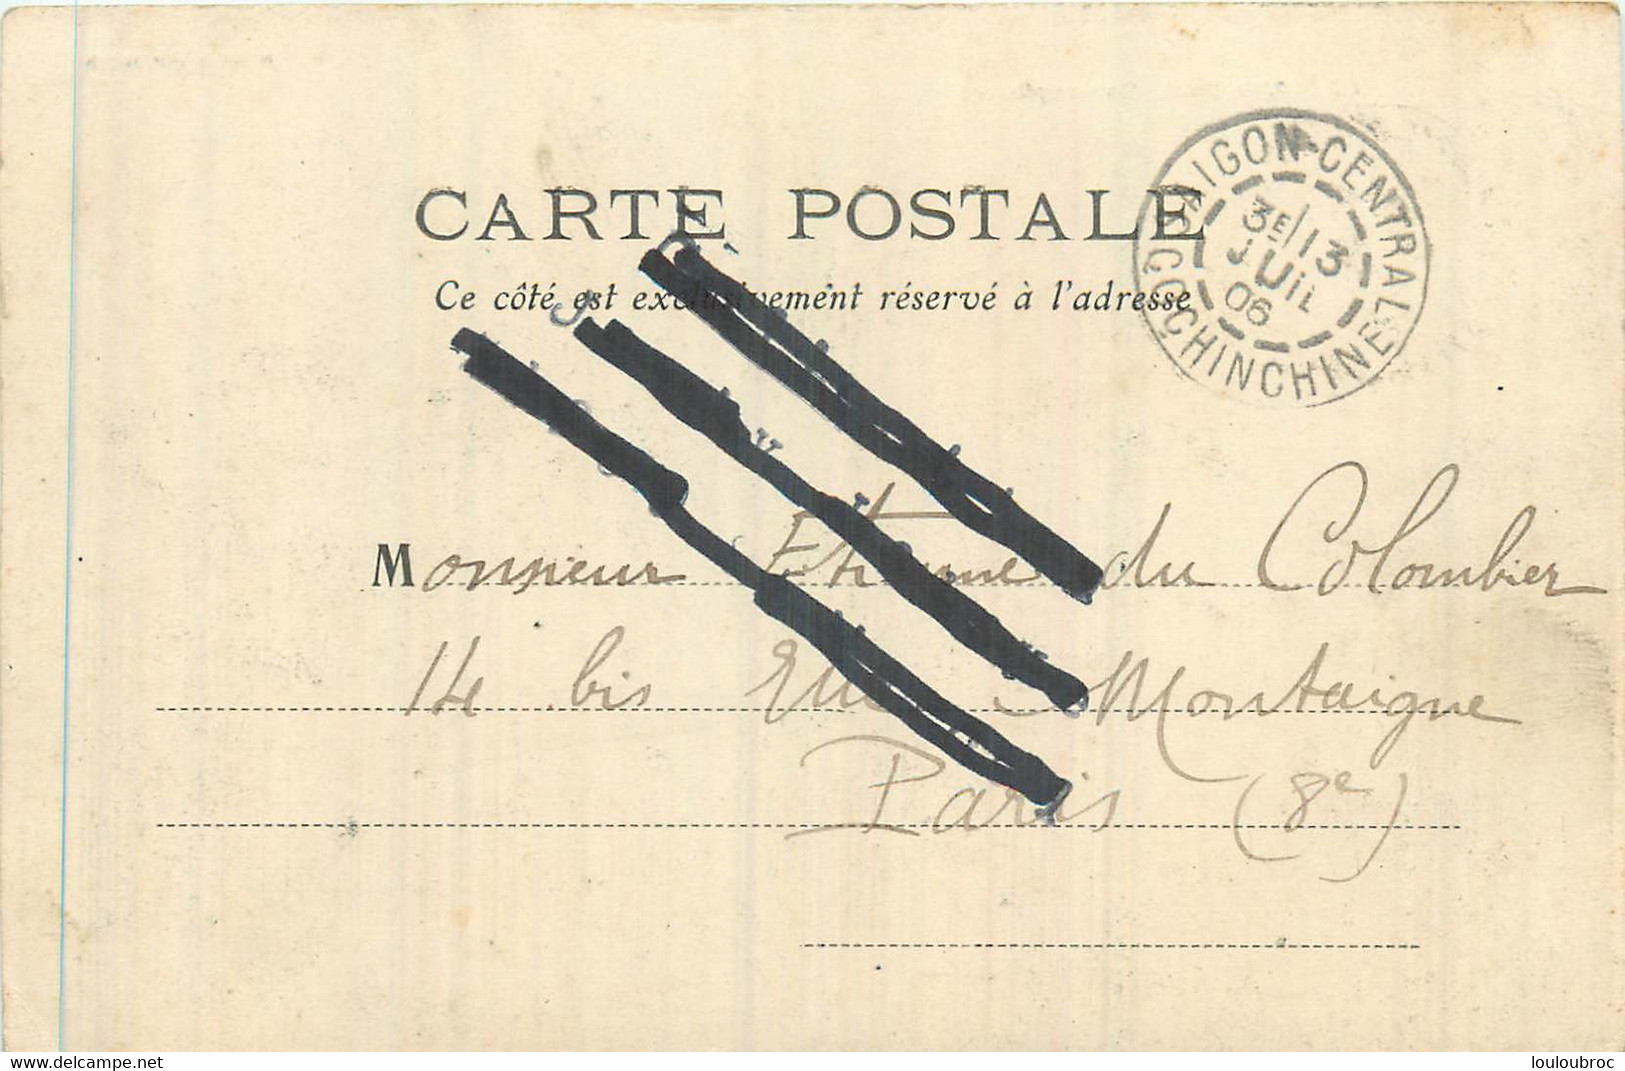 CARTE POSTALE
Ce côté est exclusivement réservé à l'adresse
SAIGON-CENTRAL
3E/13
JUIL
06
COCHINCHINE
Monsieur Etienne du Colombier
14 bis Rue Montaigne
Paris (8e)
www.delcampe.net
louloubroc